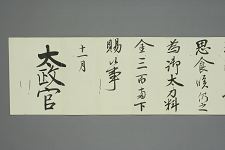 思食候仍之
為御太刀料
金三百両下
賜候事
十一月
太政官